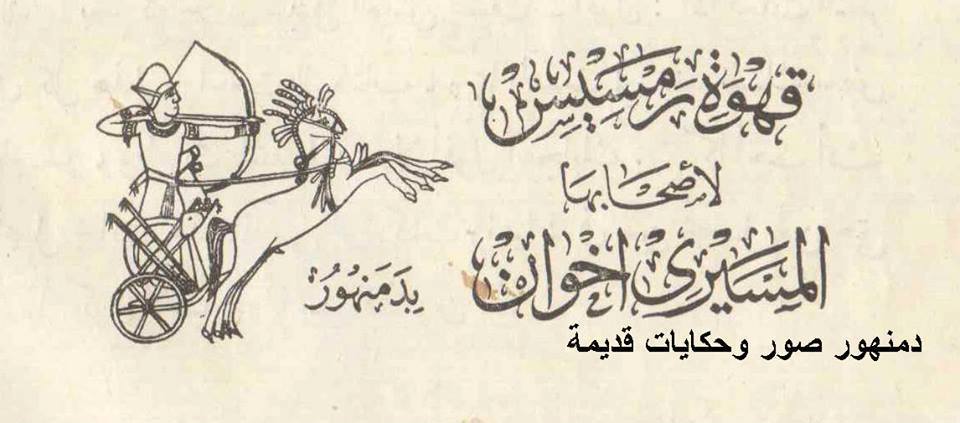 قهوة رمسيس
لأصحابها
المسيرى اخوان
بدمنهور
دمنهور صور وحكايات قديمة